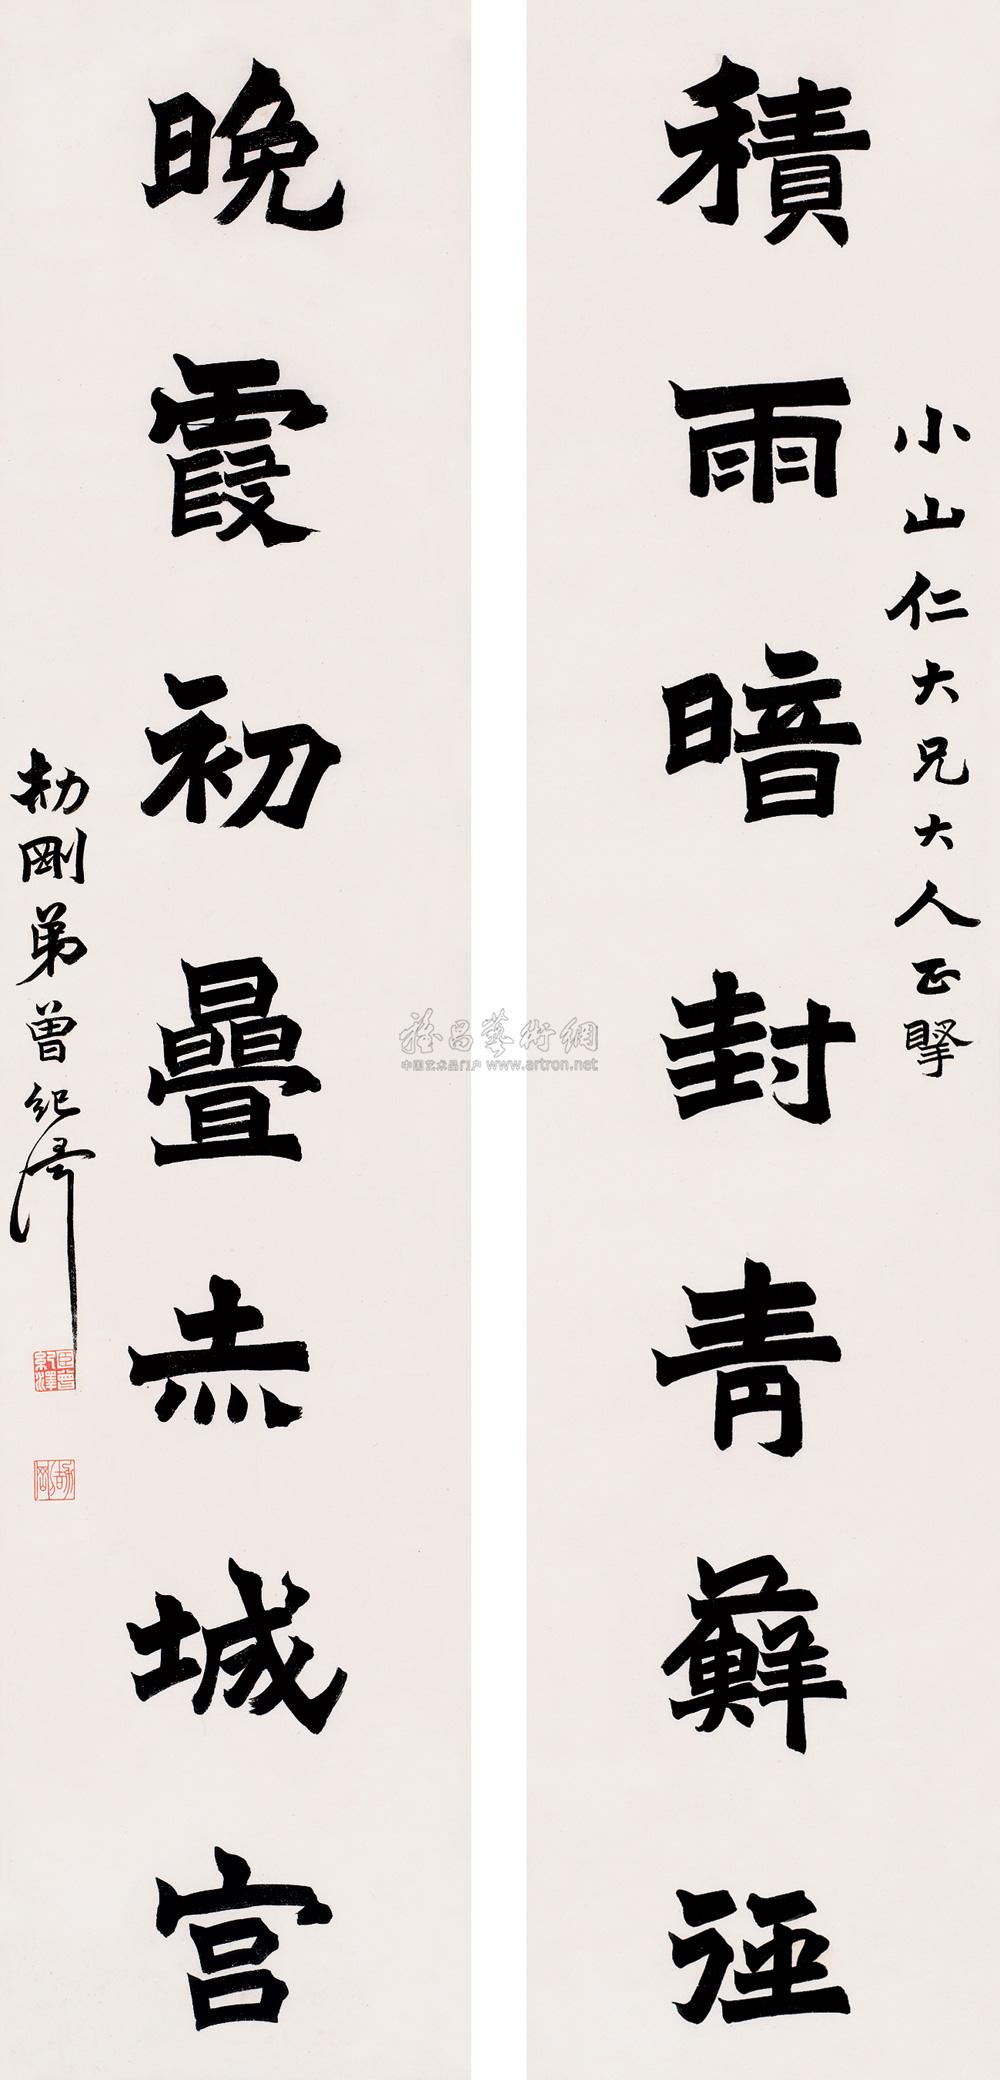 小山仁大兄大人正擥
積雨暗封青蘚徑
晚霞初疊赤城宮
劼剛弟曾紀澤
臣曾紀澤
劼剛
雅昌藝術網
中国艺术品门户 www.artron.net